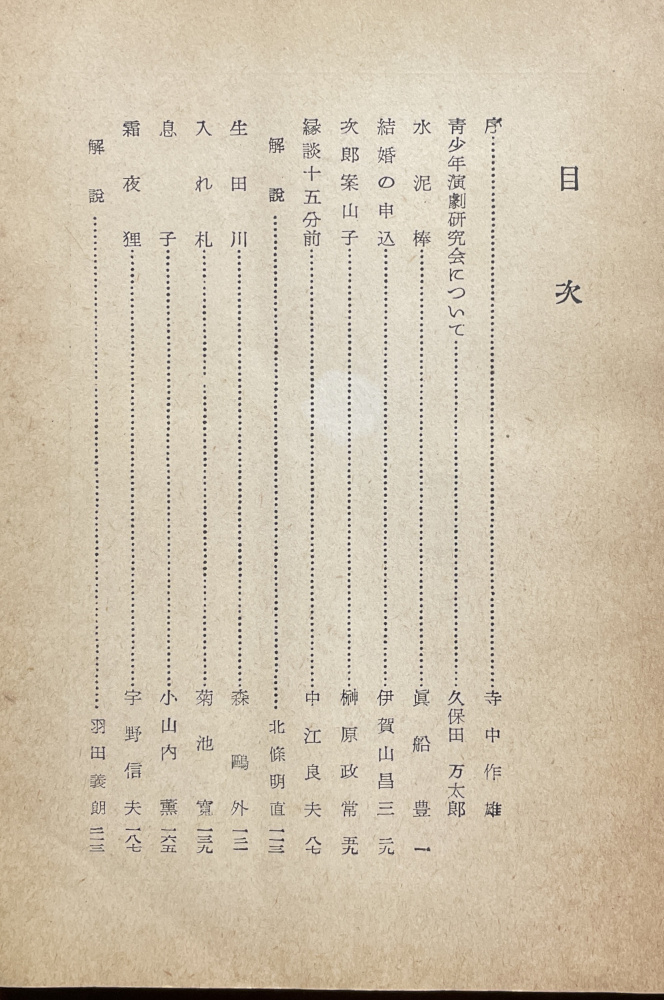 目次
序……寺中作雄
青少年演劇研究会について……久保田万太郎
水泥棒……眞船豊 一
結婚の申込……伊賀山昌三 二九
次郎案山子……榊原政常 五九
縁談十五分前……中江良夫 八七
解說……北條明直 一一三
生田川……森鷗外 一二一
入れ札……菊池寬 一三九
息子……小山内薫 一六五
霜夜狸……宇野信夫 一八七
解說……羽田義朗 二一三